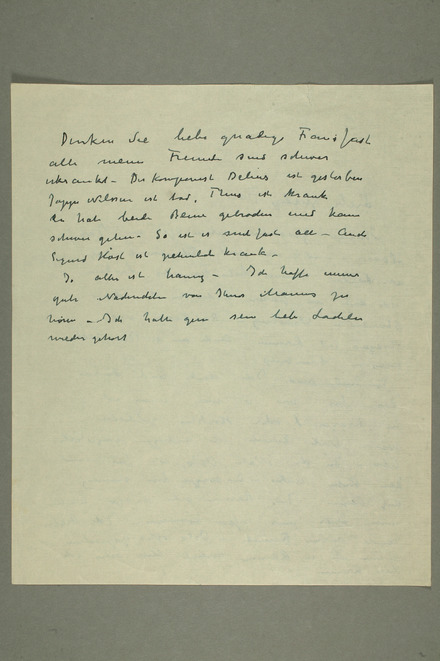 Denken Sie liebe gnädige Frau fast
alle meine Freunde sind schwer
erkrankt – Der Komponist Delius ist gestorben
Jappe Nilssen ist tod, Thiis ist krank
Er hat beide Beine gebrochen und kann
schwer gehen – So ist es sind fast alle – Auch
Sigurd Höst ist krank –
Ja alles ist traurig – Ich hoffe immer
gute Nachrichten von Ihres Mannes zu
hören – Ich hatte gern sein liebe Lachen
wieder gehört